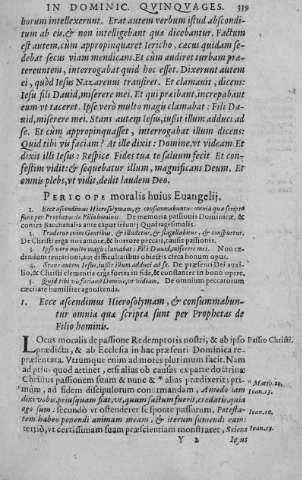 IN DOMINIC. QVINQVAGES. 339
horum intellexerunt. Erat autem verbum istud abscondi-
tum ab eis, & non intelligebant quæ dicebantur. Factum
est autem, cùm appropinquaret Iericho, cæcus quidam se-
debat secus viam mendicans. Et cùm audiret turbam præ-
tereuntem, interrogabat quid hoc esset. Dixerunt autem
ei, quòd Iesus Nazarenus transiret. Et clamauit, dicens:
Iesu fili Dauid, miserere mei. Et qui præibant, increpabant
eum vt taceret. Ipse verò multo magis clamabat: Fili Da-
uid, miserere mei. Stans autem Iesus, iussit illum adduci ad
se. Et cùm appropinquasset, interrogabat illum dicens:
Quid tibi vis faciam? At ille dixit: Domine, vt videam. Et
dixit illi Iesus: Respice. Fides tua te saluum fecit Et con-
festim vidit: & sequebatur illum, magnificans Deum. Et
omnis plebs, vt vidit, dedit laudem Deo.
PERICOPE moralis huius Euangelij.
1. Ecce ascendimus Hierosolymam, & consummabuntur omnia quæ scripta
sunt per Prophetas de Filio hominis. De memoria passionis Dominicæ, &
contra Bacchanalia ante caput ieiunij Quadragesimalis.
2. Tradetur enim Gentibus, & illudetur, & flagellabitur, & conspuetur.
De Christi erga nos amore, & horrore peccati, causis passionis.
3. Ipse verò multò magis clamabat: Fili Dauid, miserere mei. Non ce-
dendum tentationi, aut difficultatibus obiectis circa bonum opus.
4. Stans autem Iesus, iussit illum adduci ad se. De præsenti Dei auxi-
lio, & Christi clementia erga fortes in fide, & constantes in bono opere.
5. Quid tibi vis faciam? Domine, vt videam. De omnium peccatorum
cæcitate humiliter agnoscenda.
1. Ecce ascendimus Hierosolymam, & consummabun-
tur omnia quæ scripta sunt per Prophetas de
Filio hominis.
LOcus moralis de passione Redemptoris nostri, & ab ipso Passio Christi.
prædicta, & ab Ecclesia in hac præsenti Dominica re-
præsentata. Vtrumque enim ad mores plurimum facit. Nam
ad prius quod attinet, etsi alias ob causas ex parte doctrinæ
Christus passionem suam & nunc & aliàs prædixerit: pri- Matth.
mùm, ad fidem discipulorum confirmandam, Amodo iam Ioan.13.
dixi vobis, priusquam fiat, vt, quum factum fuerit, credatis, quia
ego sum: secundò vt ostenderet se sponte passurum, Potesta- Ioan.10.
tem habeo ponendi animam meam, & iterum sumendi eam:
tertiò, vt certissimam suam præscientiam monstraret, Sciens Ioan.13.
Y 2 Iesus